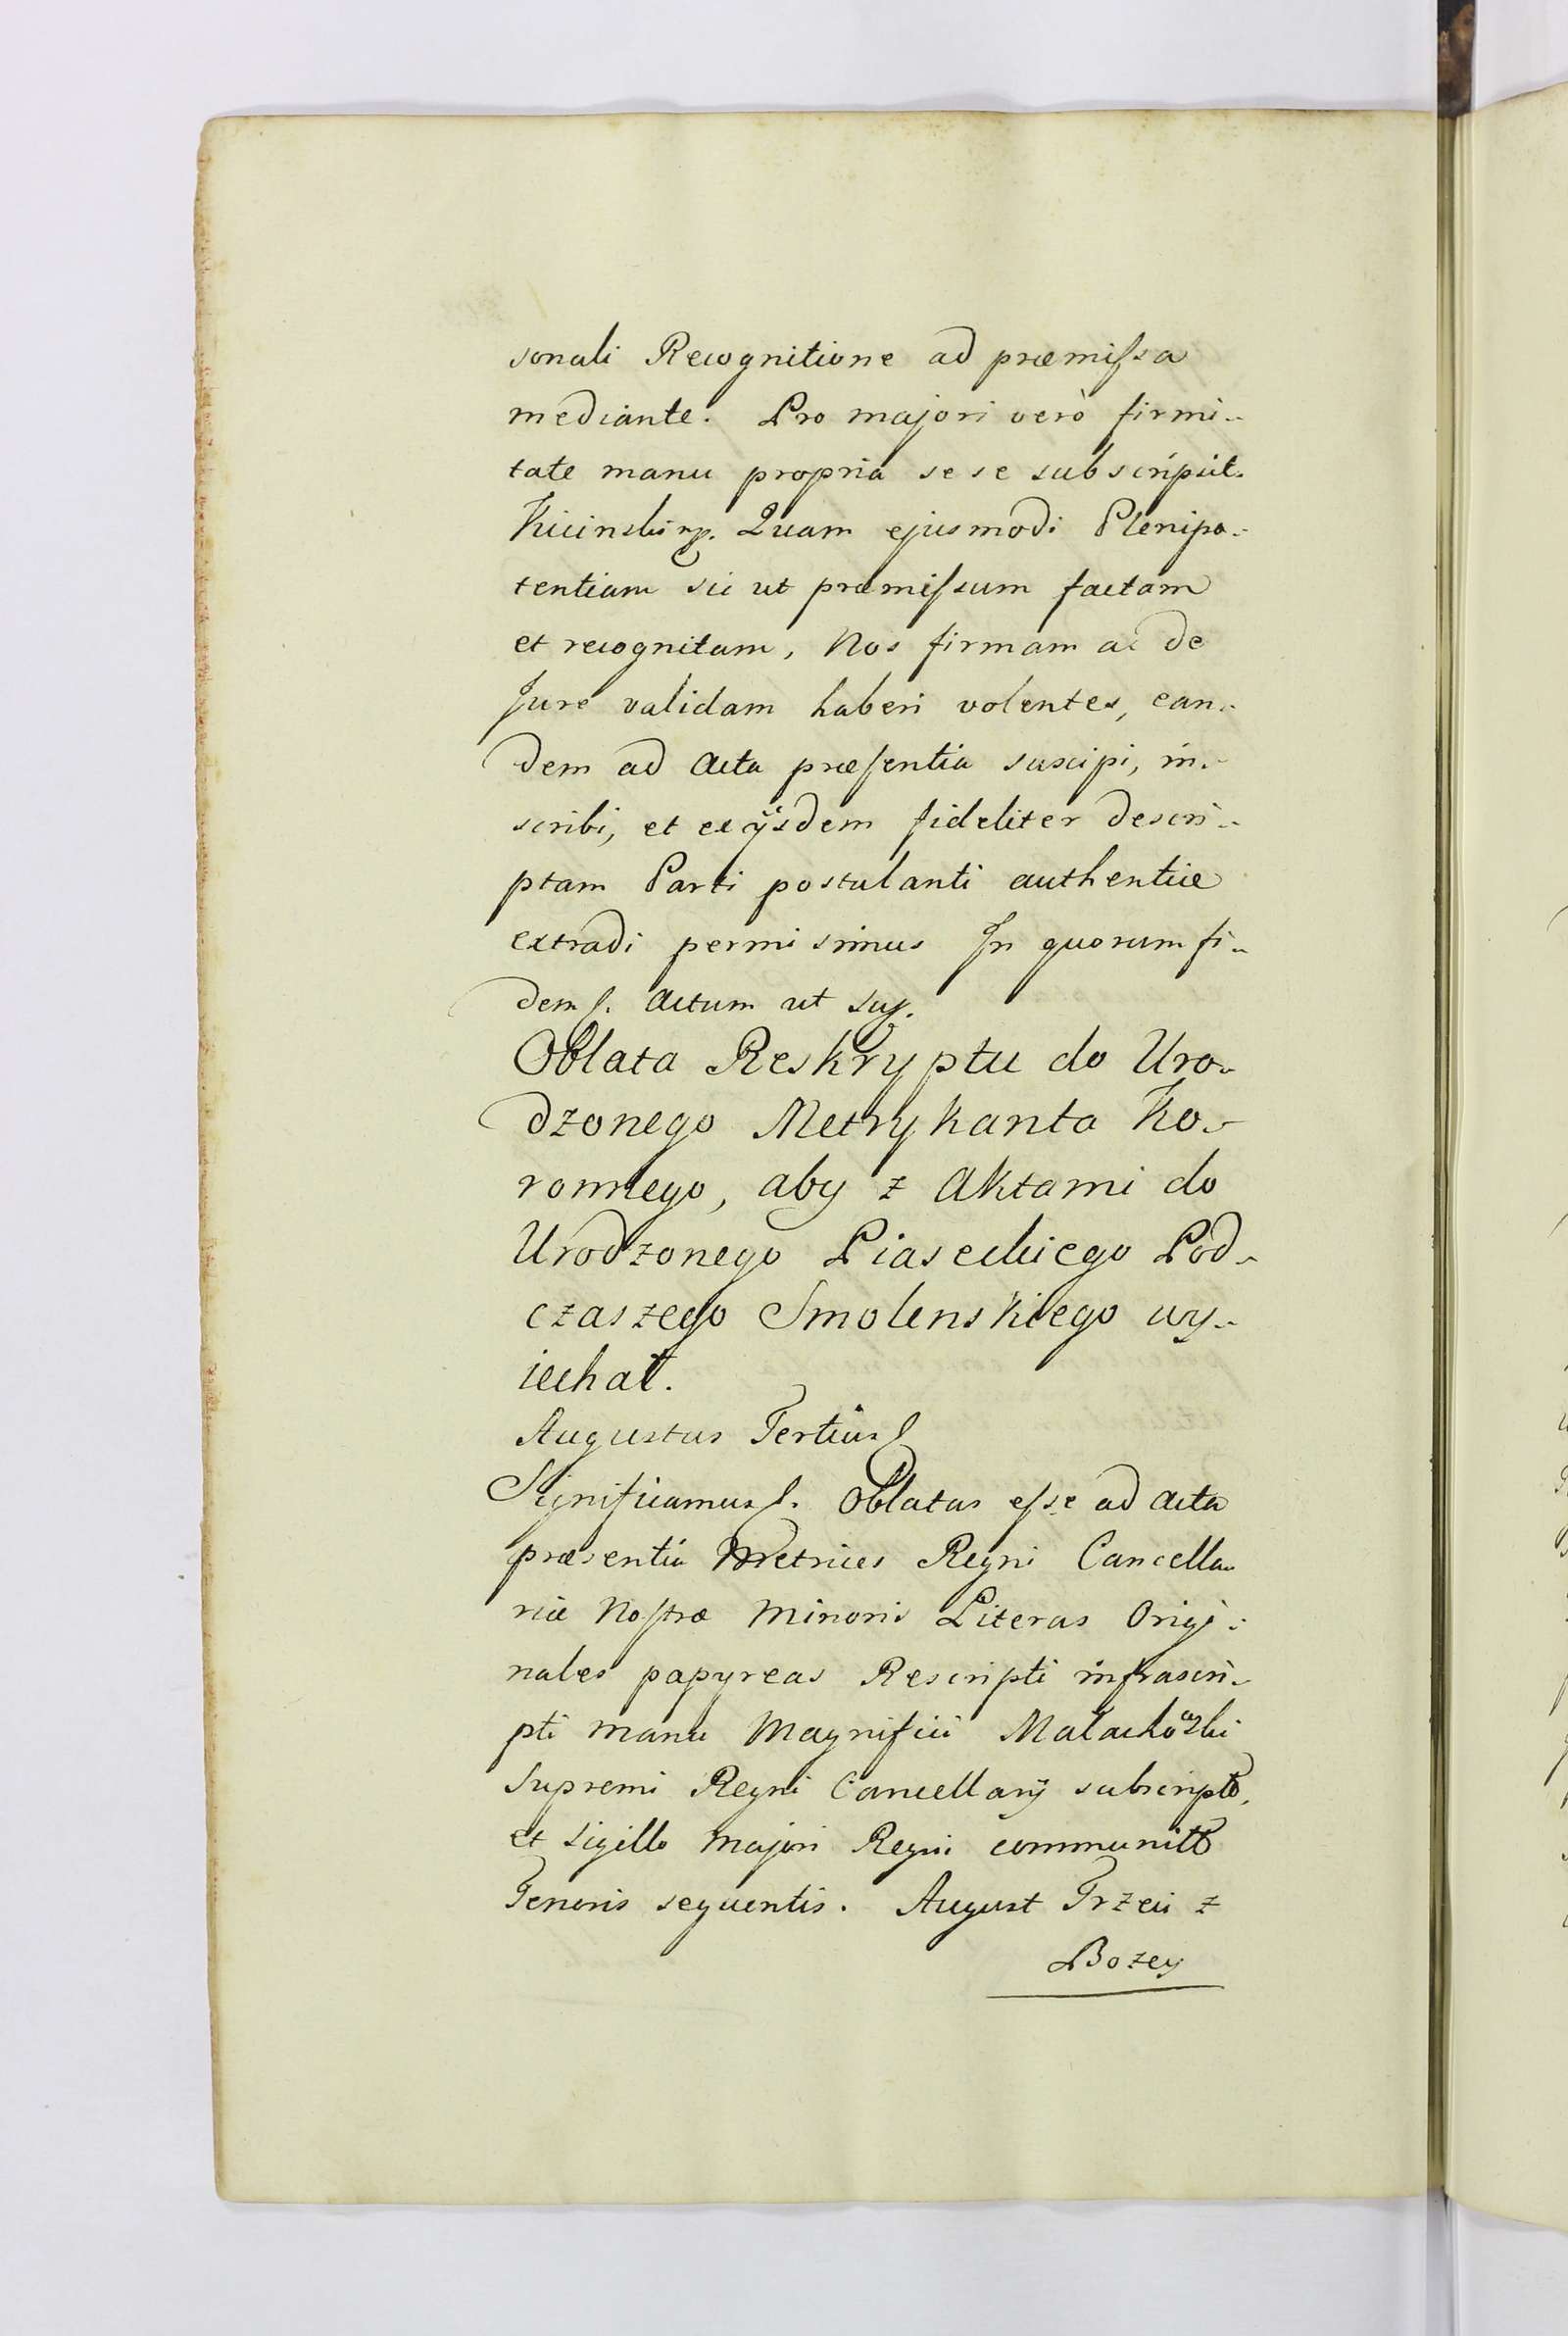 sonali Recognitione ad præmissa
mediante. Pro majori verò firmi-
tate manu propria se se subscripsit.
Kicinski mp. Quam ejusmodi Plenipo-
tentiam sic ut præmissum factam
et recognitam, Nos firmam ac de
Jure validam haberi volentes, ean-
dem ad Acta præsentia suscipi, in-
scribi, et ex ijsdem fideliter descri-
ptam Parti postulanti authentice
extradi permisimus In quorum fi-
dem Actum ut sup.
Oblata Reskryptu do Uro-
dzonego Metrykanta Ko-
ronnego, aby z Aktami do
Urodzonego Piaseckiego Pod-
czaszego Smolenskiego wy-
iechał.
Augustus Tertius
Significamus Oblatas esse ad Acta
præsentia Metrices Regni Cancella-
riæ Nostræ Minoris Literas Origi-
nales papyreas Rescripti infrascri-
pti manu Magnifici Małachowski
Supremi Regni Cancellarij subscripto,
et Sigillo Majori Regni communito
Tenoris sequentis. August Trzeci z
Bozey